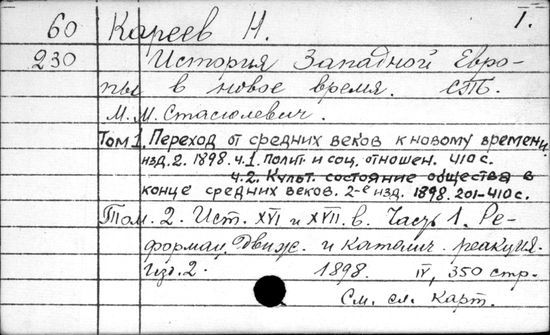 I.
60 Кареев Н.
230 История Западной Евро-
пы в новое время. СТ.
М.М. Стасюлевич.
Том 1. Переход от средних веков к новому времени
изд. 2. 1898. ч.1. полит. и соц. отношен. 410 с.
ч.2. Культ. состояние общества в
конце средних веков. 2-е изд. 1898. 201-410 с.
Том. 2. Ист. XVI и XVII. в. Часть 1. Ре-
формац. движ. и католич. реакция.
Изд. 2. 1898. IV, 350 стр.
См. сл. карт.